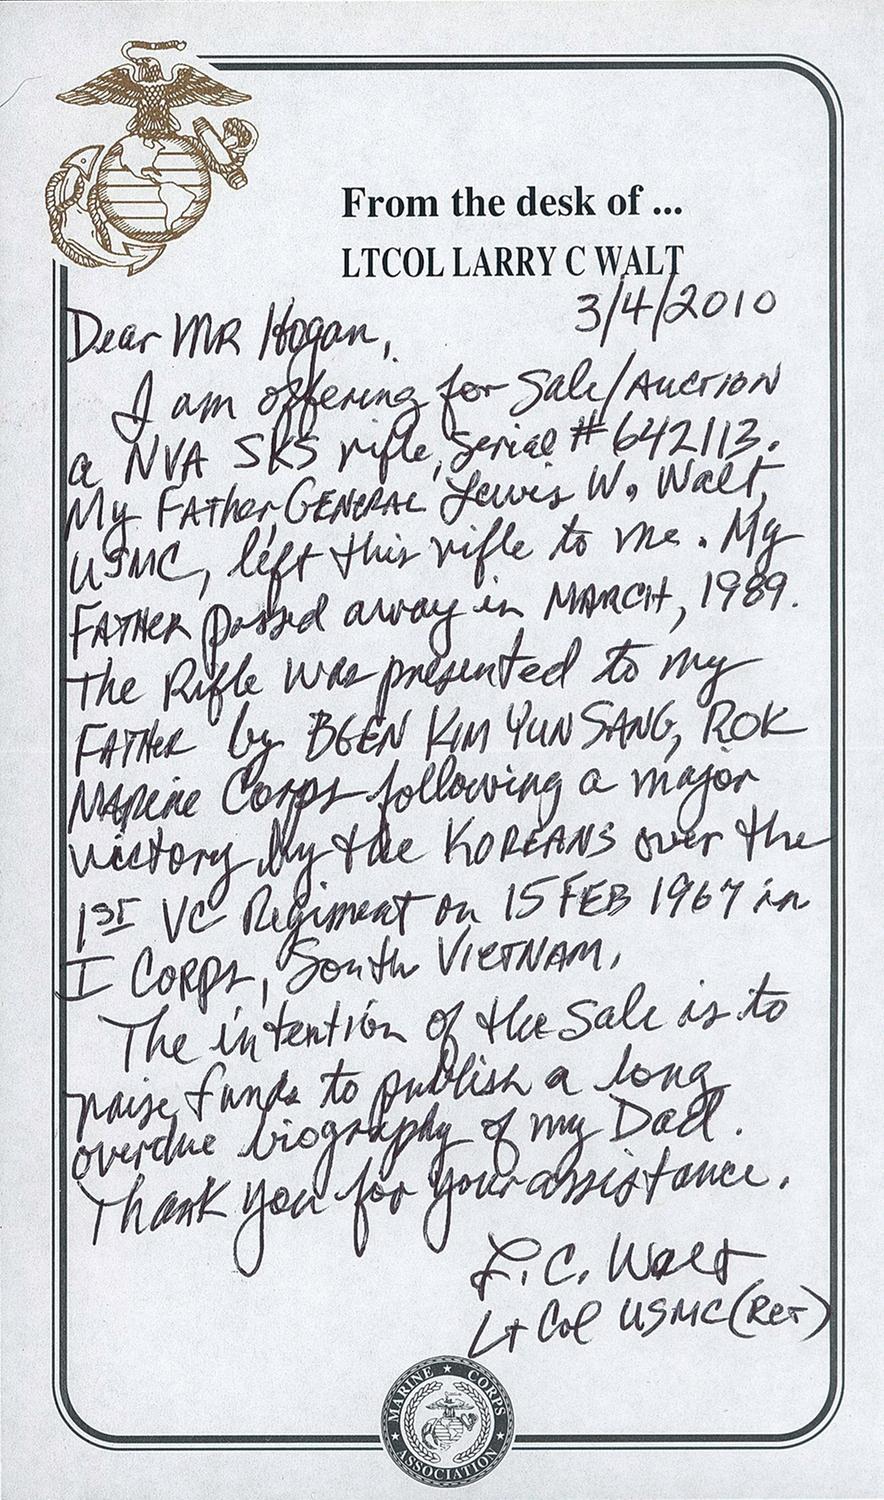 From the desk of ...
LTCOL LARRY C WALT
3/4/2010
Dear MR Hogan,
I am offering for Sale/AUCTION
a NVA SKS rifle, serial # 642113.
My FATHER, GENERAL Lewis W. Walt,
USMC, left this rifle to me. My
FATHER passed away in MARCH, 1989.
The Rifle was presented to my
FATHER by BGEN KIM YUN SANG, ROK
MARINE Corps following a major
victory by the KOREANS over the
1ST VC Regiment on 15 FEB 1967 in
I CORPS, South VIETNAM.
The intention of the sale is to
raise funds to publish a long
overdue biography of my Dad.
Thank you for your assistance.
L. C. Walt
Lt Col USMC (Ret)
MARINE CORPS
ASSOCIATION